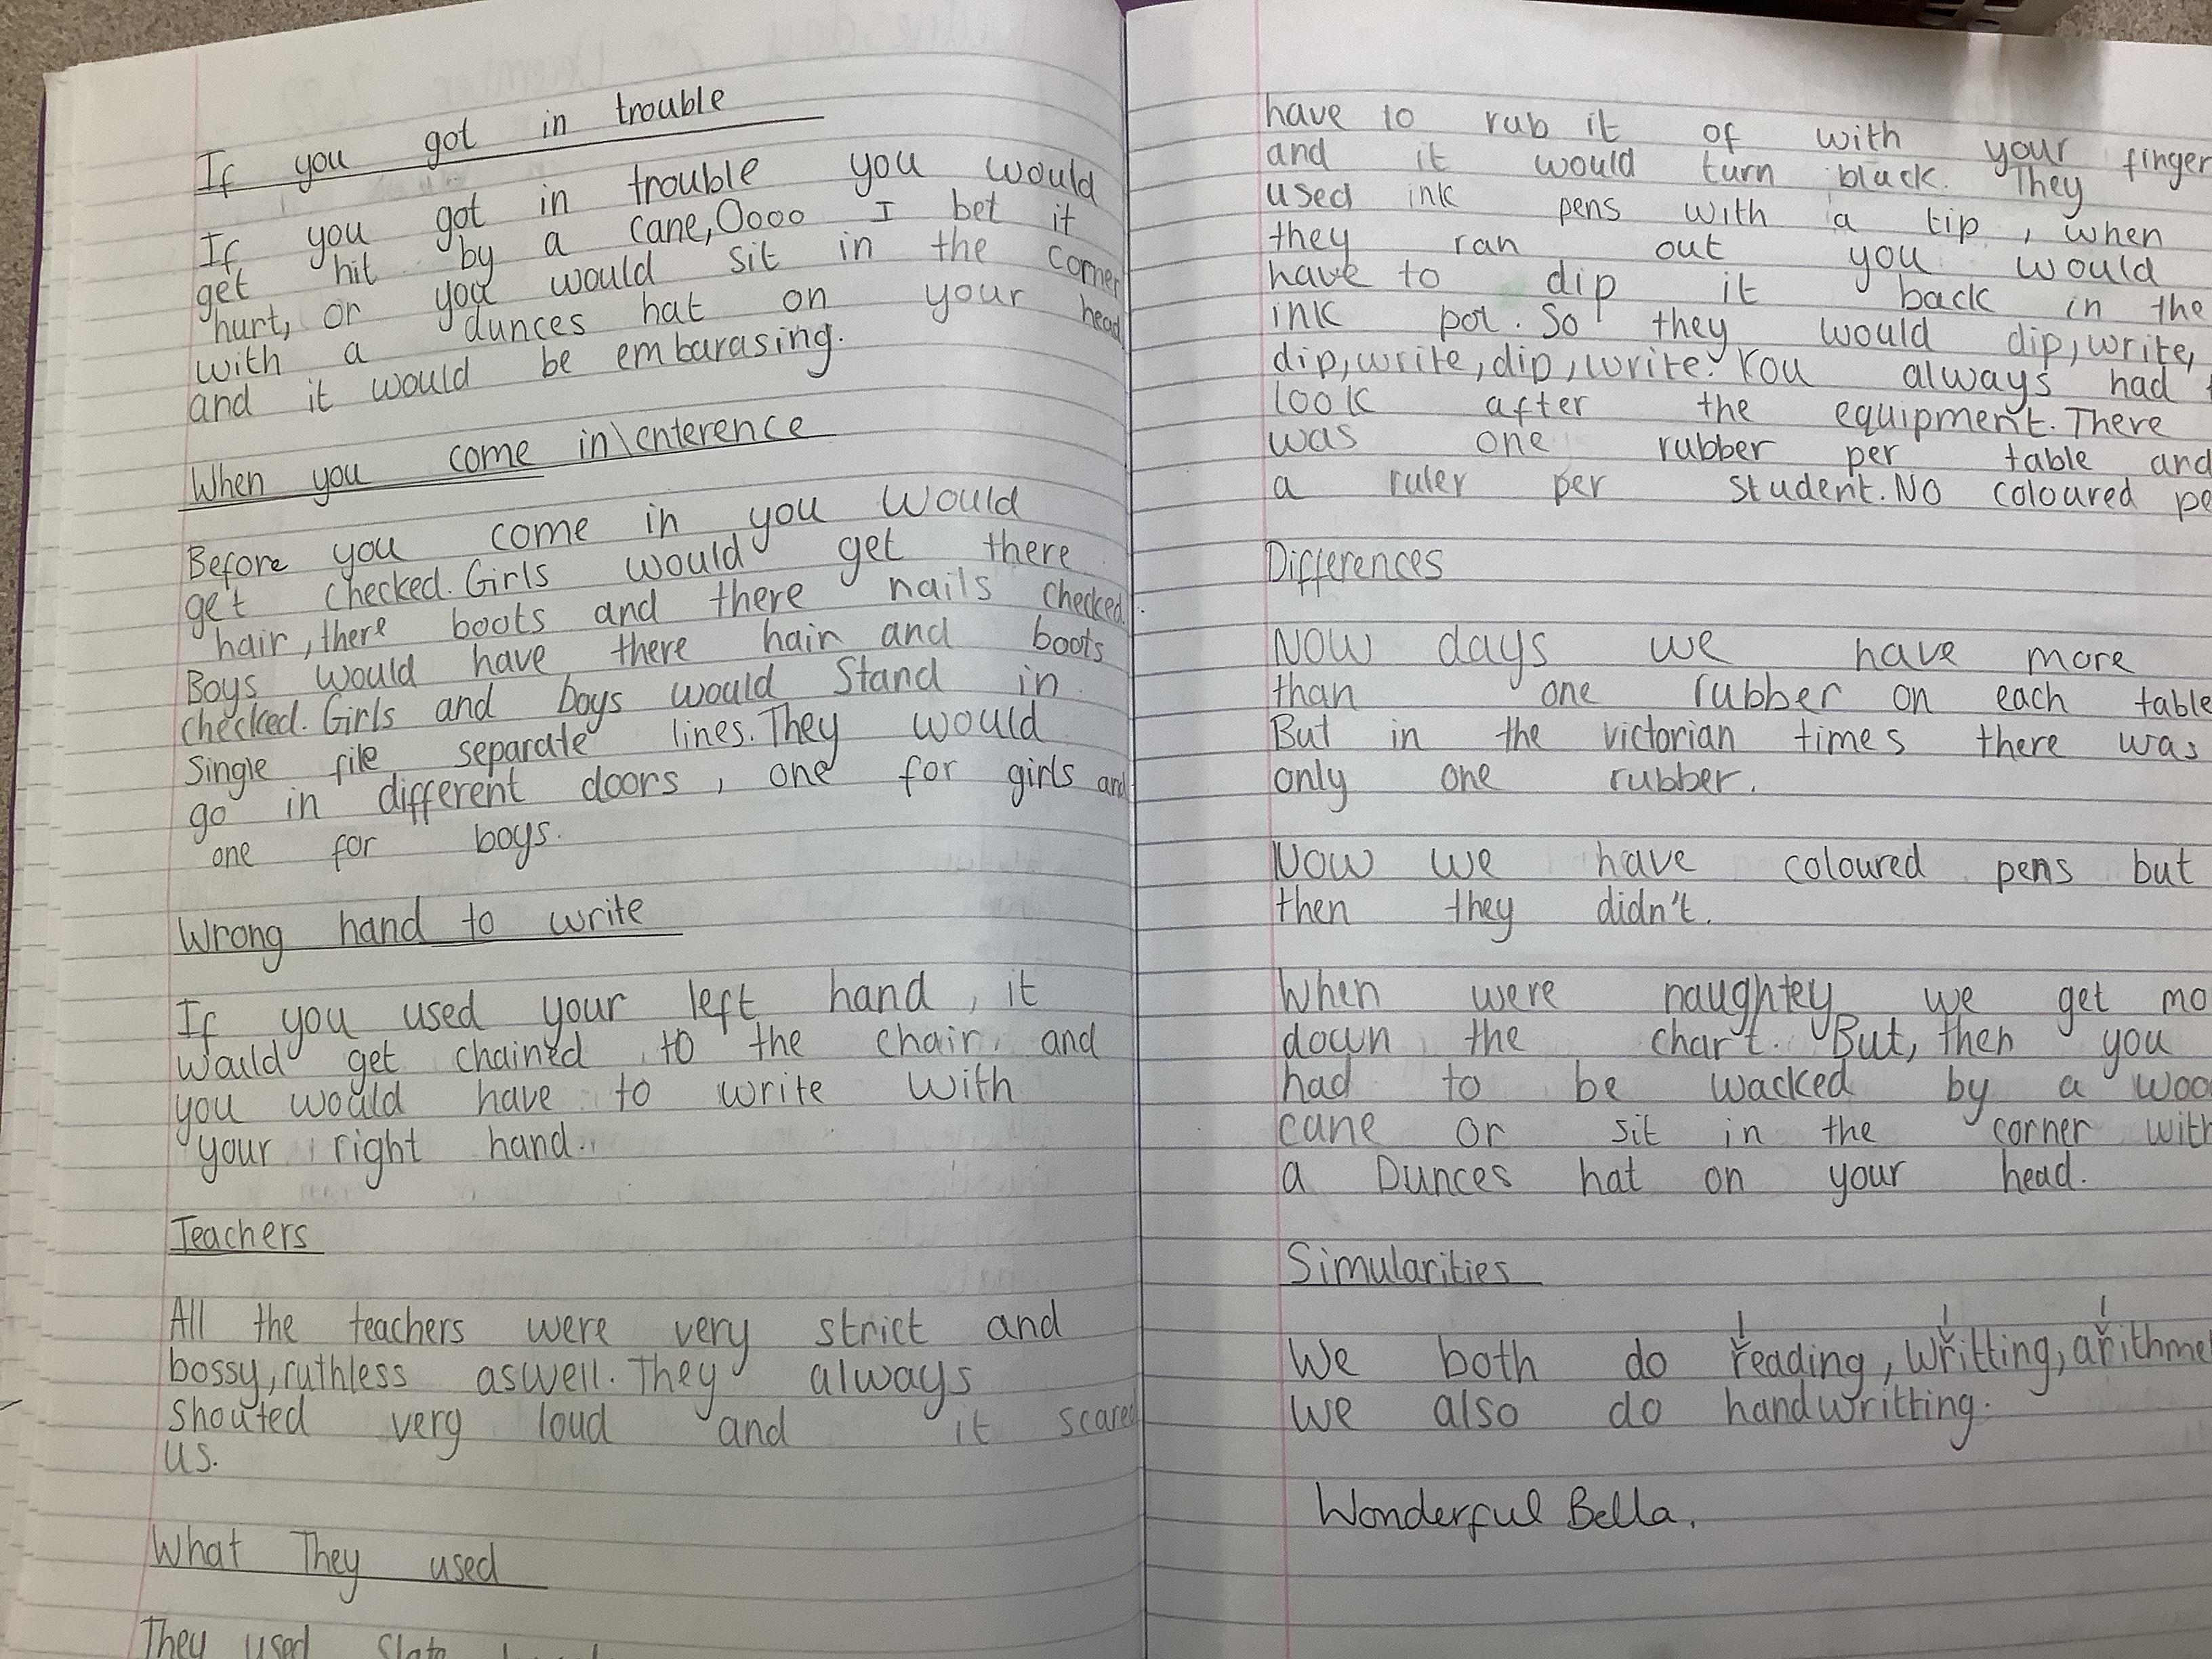 If you got in trouble
If you got in trouble you would
get hit by a cane, Oooo I bet it
hurt, or you would sit in the corner
with a dunces hat on your head
and it would be embarasing.
When you come in\enterence
Before you come in you would
get checked. Girls would get there
hair, there boots and there nails checked.
Boys would have there hair and boots
checked. Girls and boys would Stand in
Single file separate lines. They would
go in different doors, one for girls and
one for boys.
Wrong hand to write
If you used your left hand, it
would get chained to the chair and
you would have to write with
your right hand.
Teachers
All the teachers were very strict and
bossy, ruthless aswell. They always
shouted very loud and it scared
us.
What They used
They used
have to rub it of with your finger
and it would turn black. They
used ink pens with a tip, when
they ran out you would
have to dip it back in the
ink pot. So they would dip, write,
dip, write, dip, write. You always had
look after the equipment. There
was one rubber per table and
a ruler per student. No coloured
Differences
Now days we have more
than one rubber on each table
But in the victorian times there was
only one rubber.
Now we have coloured pens but
then they didn't.
When were naughtey we get
down the chart. But, then you
had to be wacked by a
cane or sit in the corner with
a Dunces hat on your head.
Simularities
We both do reading, writting,
we also do handwritting.
Wonderful Bella.